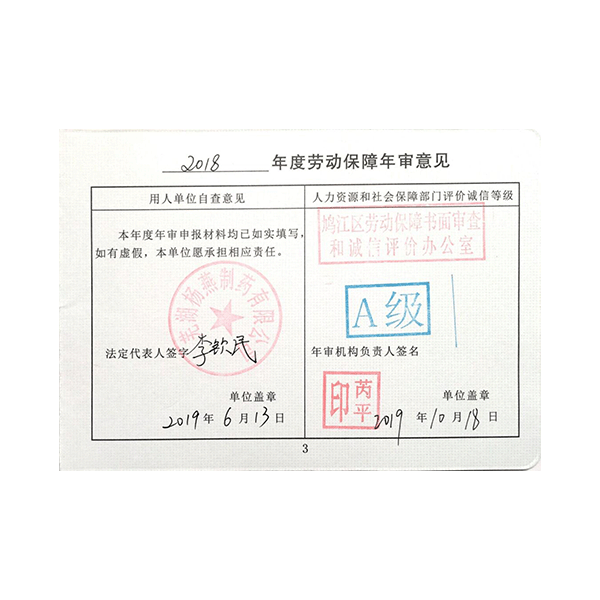 2018 年度劳动保障年审意见
用人单位自查意见
人力资源和社会保障部门评价诚信等级
本年度年审申报材料均已如实填写,
如有虚假,本单位愿承担相应责任。
芜湖杨燕制药有限公司
法定代表人签字 李钦民
单位盖章
2019 年 6 月 13 日
鸠江区劳动保障书面审查
和诚信评价办公室
A级
年审机构负责人签名
芮平印
单位盖章
2019 年 10 月 18 日
3